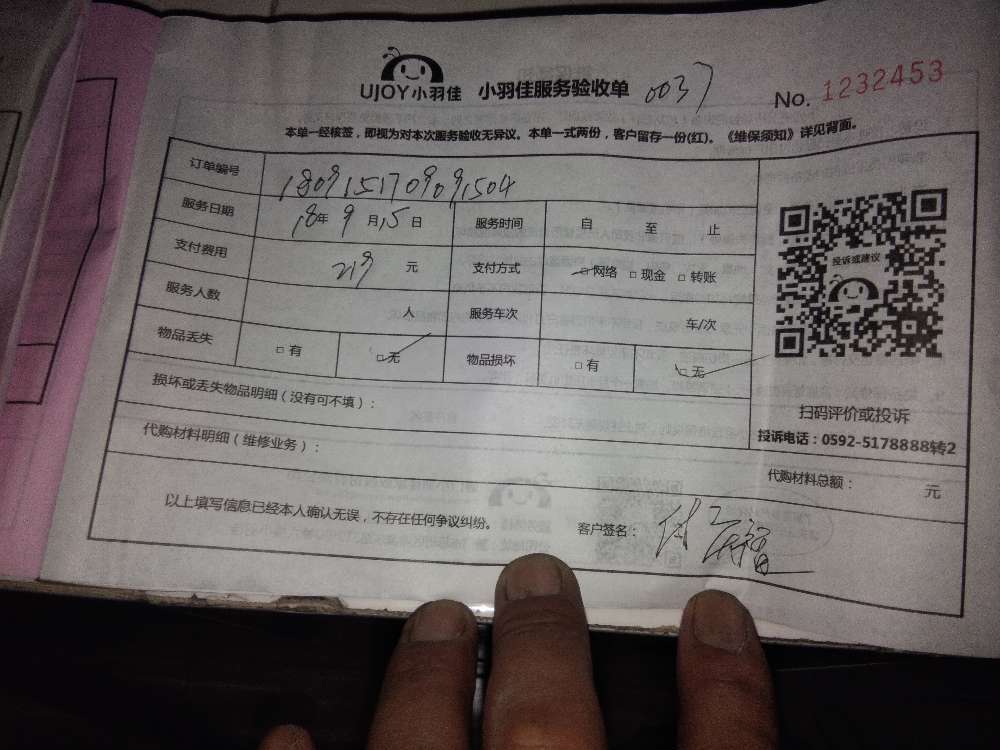 UJOY小羽佳 小羽佳服务验收单 0037 No. 1232453
本单一经核签，即视为对本次服务验收无异议。本单一式两份，客户留存一份(红)。《维保须知》详见背面。
订单编号 1809151709091504
服务日期 18年 9月15日 服务时间 自 至 止
支付费用 219 元 支付方式 □网络 □现金 □转账
服务人数 人 服务车次 车/次
物品丢失 □有 □无 物品损坏 □有 □无
投诉或建议
损坏或丢失物品明细（没有可不填）：
扫码评价或投诉
投诉电话：0592-5178888转2
代购材料明细（维修业务）： 代购材料总额： 元
以上填写信息已经本人确认无误，不存在任何争议纠纷。 客户签名：